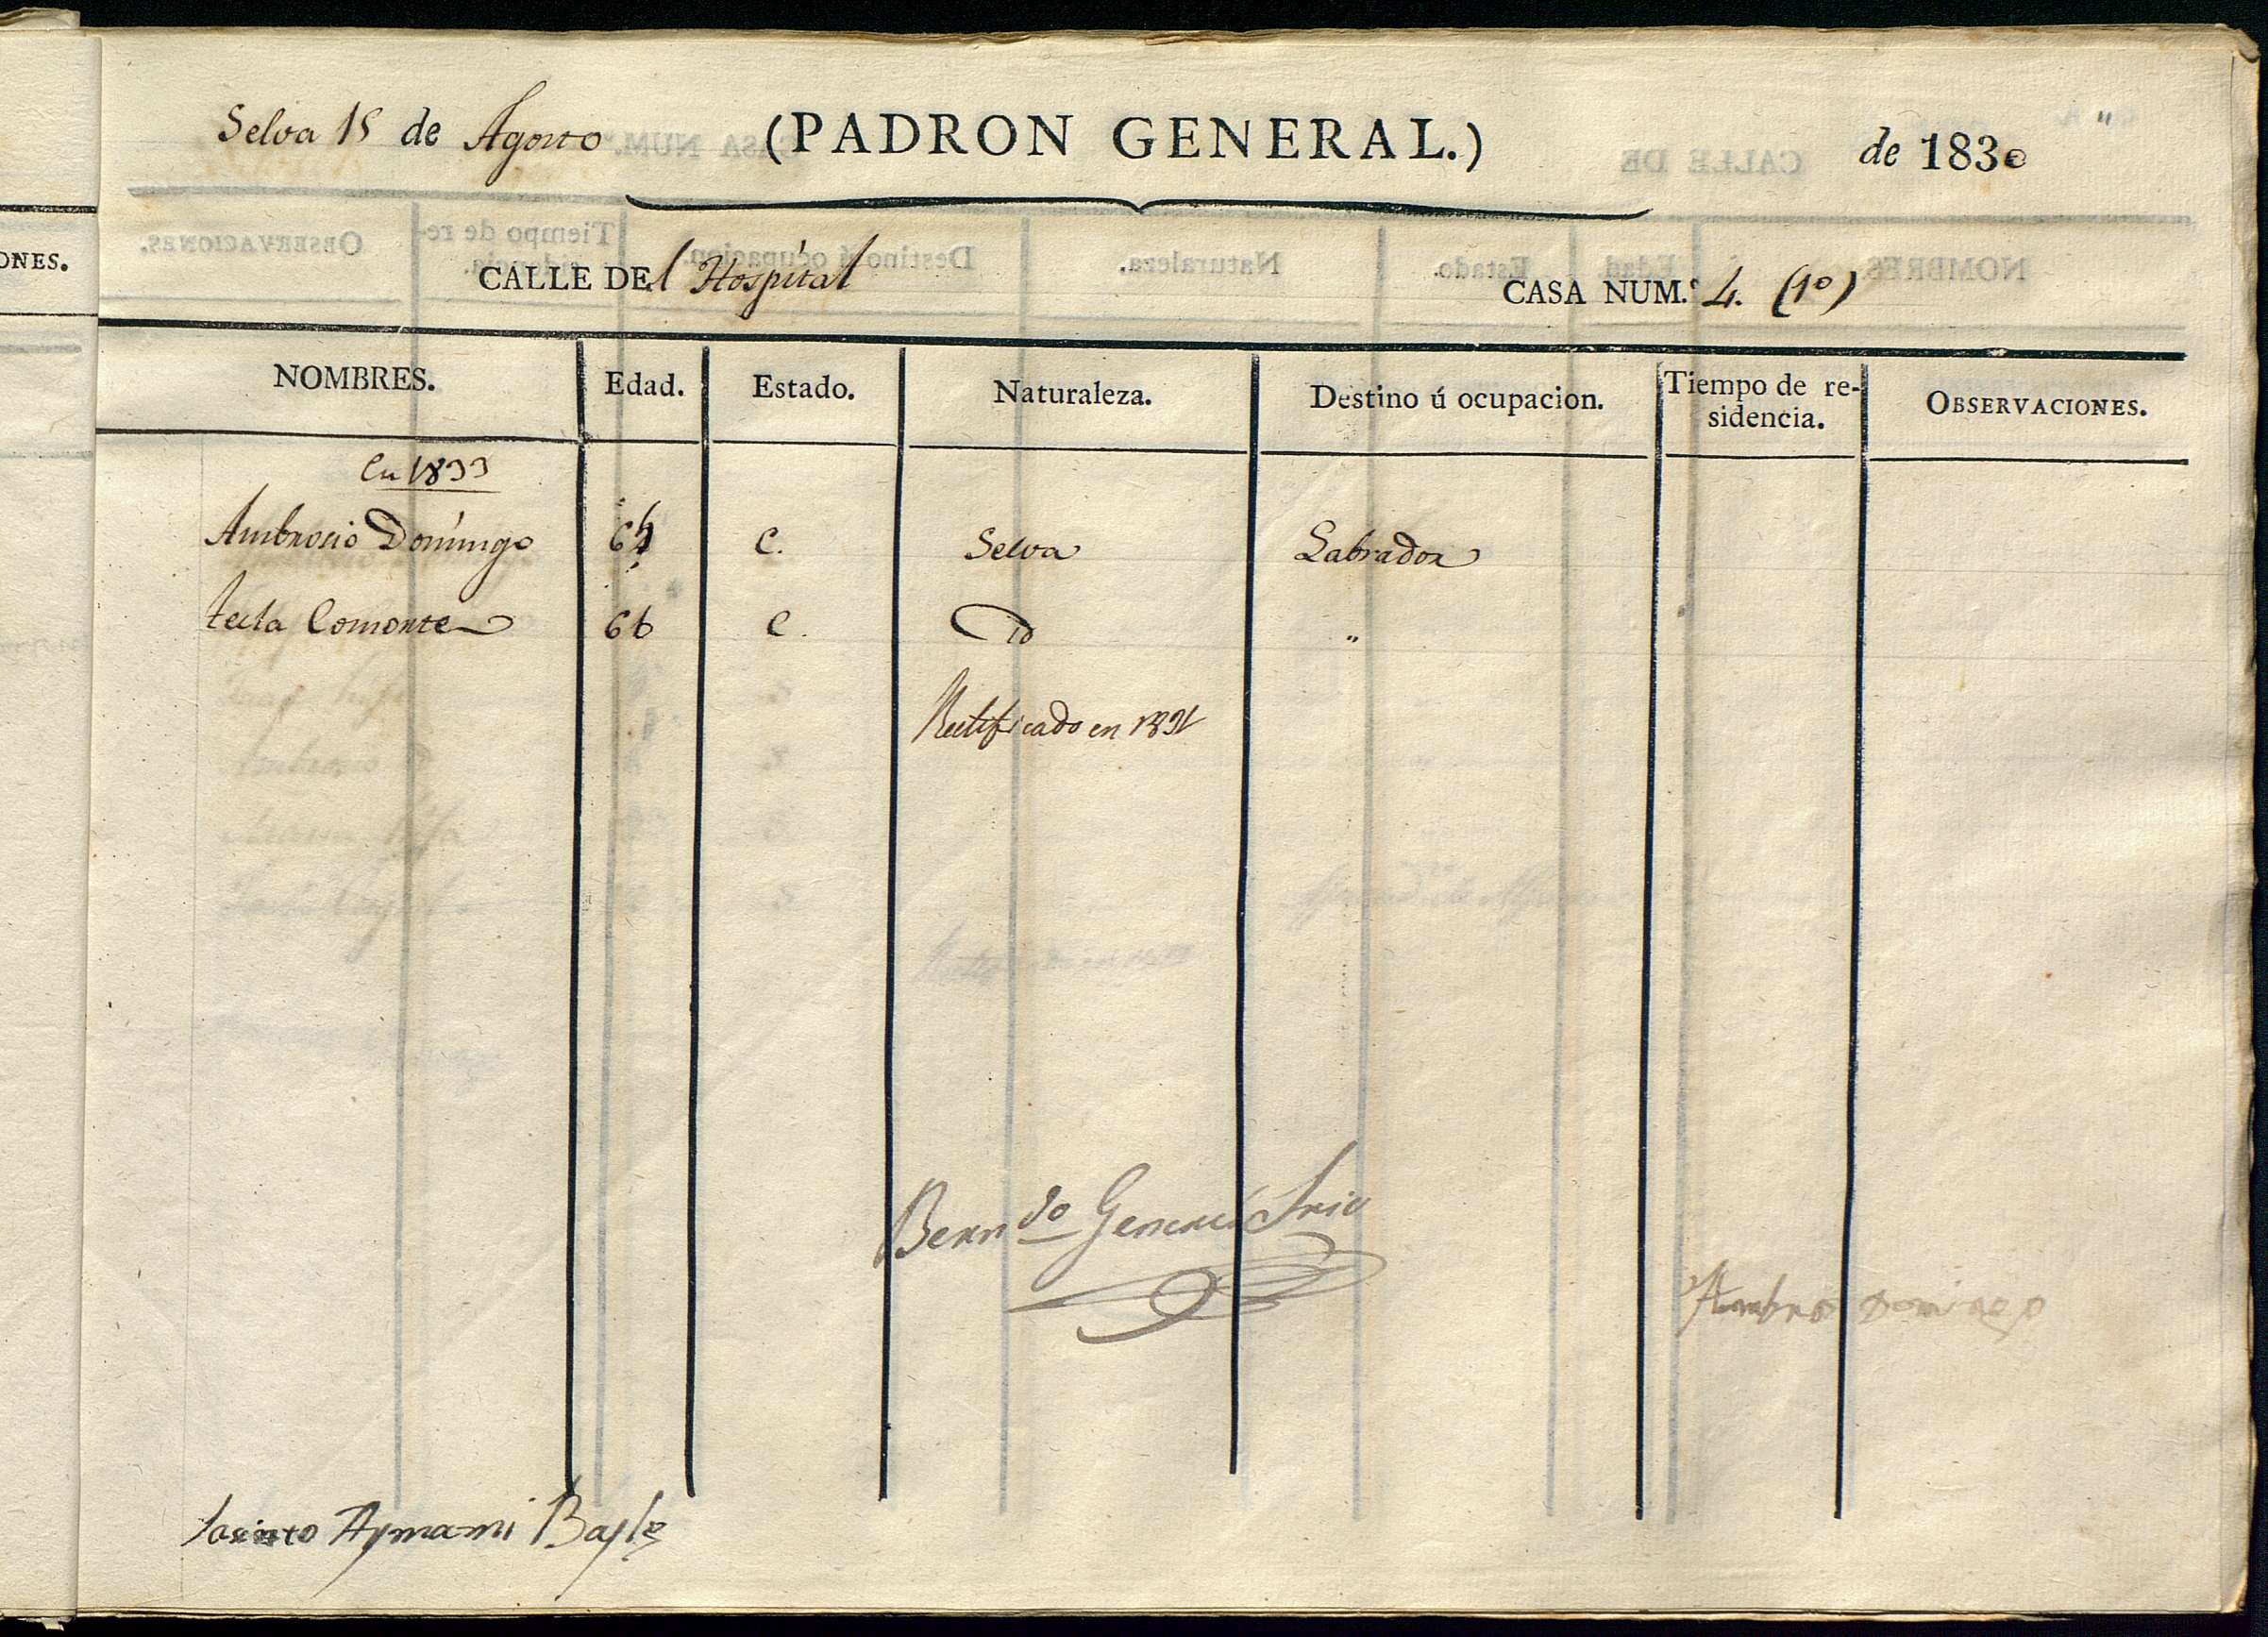 Selva 15 de Agosto (PADRON GENERAL.) de 1830
CALLE DEl Hospital CASA NUM.º 4. (1º)
ONES.
NOMBRES. Edad. Estado. Naturaleza. Destino ú ocupacion. Tiempo de re- OBSERVACIONES.
sidencia.
En 1833
Ambrosio Domingo C. Selva Labrador
Tecla Comonte 66 C. id "
Rectificado en
Bern.do Srio
Ambros Domingo
Jacinto Aymami Bayle